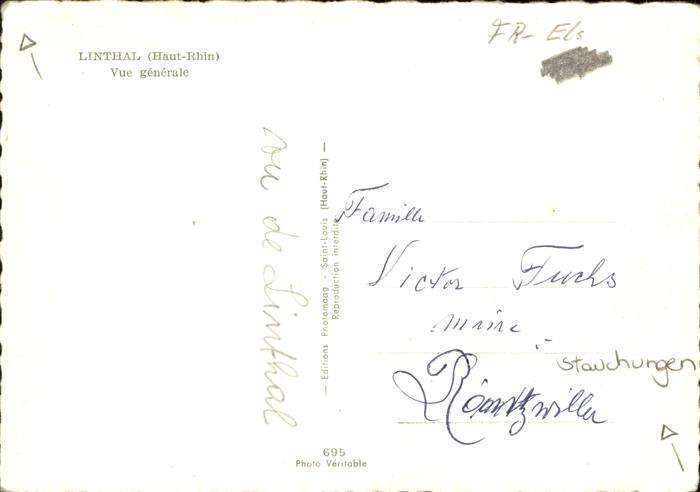 LINTHAL (Haut-Rhin)
Vue générale
FR- Els
vu de Linthal
— Editions Photomaag - Saint-Louis (Haut-Rhin) —
Reproduction interdite
Famille
Victor Fuchs
maire
Rantzwiller
stauchungen
695
Photo Véritable